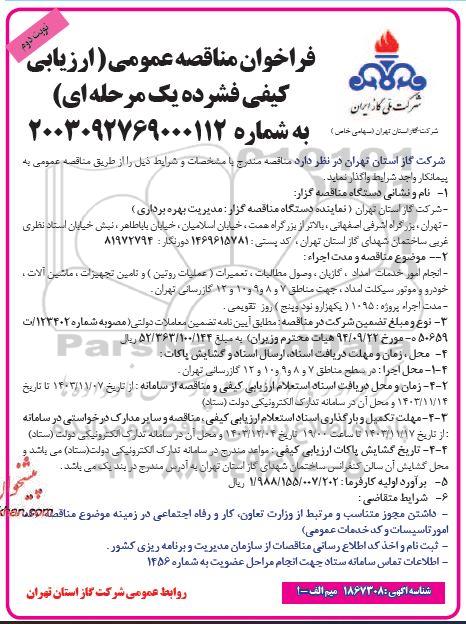 نوبت دوم
فراخوان مناقصه عمومی (ارزیابی
کیفی فشرده یک مرحله ای)
به شماره ۲۰۰۳۰۹۲۷۶۹۰۰۰۱۱۲
شرکت ملی گاز ایران
شرکت گاز استان تهران (سهامی خاص)
شرکت گاز استان تهران در نظر دارد مناقصه مندرج با مشخصات و شرایط ذیل را از طریق مناقصه عمومی به
پیمانکار واجد شرایط واگذار نماید.
۱- نام و نشانی دستگاه مناقصه گزار:
-شرکت گاز استان تهران (نماینده دستگاه مناقصه گزار: مدیریت بهره برداری)
- تهران، بزرگراه اشرفی اصفهانی، بالاتر از بزرگراه همت، خیابان اسلامیان، خیابان باباطاهر، نبش خیابان استاد نظری
غربی ساختمان شهدای گاز استان تهران، کد پستی: ۱۴۶۹۶۱۵۷۸۱ دورنگار: ۸۱۹۷۲۷۹۴
۲- موضوع مناقصه و مدت اجراء:
- انجام امور خدمات امداد، گازبان، وصول مطالبات، تعمیرات (عملیات روتین) و تامین تجهیزات، ماشین آلات،
خودرو و موتور سیکلت امداد، جهت مناطق ۷ و ۸ و ۹ و ۱۰ و ۱۲ گازرسانی تهران.
- مدت اجراء پروژه: ۱۰۹۵ (یکهزار و نود وپنج) روز تقویمی.
۳- نوع و مبلغ تضمین شرکت در مناقصه: مطابق آیین نامه تضمین معاملات دولتی (مصوبه شماره ۱۲۳۴۰۲/ت
۵۰۶۵۹ ه- مورخ ۹۴/۰۹/۲۲ هیات محترم وزیران) به مبلغ ۵۲/۳۶۳/۱۰۰/۱۴۴ ریال
۴- محل، زمان و مهلت دریافت اسناد، ارسال اسناد و گشایش پاکات:
۴-۱- محل اجرا: در سطح مناطق ۷ و ۸ و ۹ و ۱۰ و ۱۲ گازرسانی تهران.
۴-۲- زمان و محل دریافت اسناد استعلام ارزیابی کیفی و مناقصه از سامانه: از تاریخ ۱۴۰۳/۱۱/۰۷ تا تاریخ
۱۴۰۳/۱۱/۱۴ و محل آن در سامانه تدارک الکترونیکی دولت (ستاد)
۴-۳- مهلت تکمیل و بارگذاری اسناد استعلام ارزیابی کیفی، مناقصه و سایر مدارک درخواستی در سامانه
: از تاریخ ۱۴۰۳/۱۱/۱۷ تا ساعت ۱۹:۰۰ تاریخ ۱۴۰۳/۱۲/۰۴ و محل آن در سامانه تدارک الکترونیکی دولت (ستاد)
۴-۴- تاریخ گشایش پاکات ارزیابی کیفی: مواعد مندرج در سامانه تدارک الکترونیکی دولت(ستاد) می باشد و
محل گشایش آن سالن کنفرانس ساختمان شهدای گاز استان تهران به آدرس مندرج در بند یک می باشد.
۵- برآورد اولیه کارفرما: ۱/۹۸۸/۱۵۵/۰۰۷/۲۰۲ ریال
۶- شرایط متقاضی:
- داشتن مجوز متناسب و مرتبط از وزارت تعاون، کار و رفاه اجتماعی در زمینه موضوع مناقصه (کد
امور تاسیسات و کد خدمات عمومی)
- ثبت نام و اخذ کد اطلاع رسانی مناقصات از سازمان مدیریت و برنامه ریزی کشور.
- اطلاعات تماس سامانه ستاد جهت انجام مراحل عضویت به شماره ۱۴۵۶
شناسه آگهی: ۱۸۶۷۳۰۸ میم الف-۱
روابط عمومی شرکت گاز استان تهران